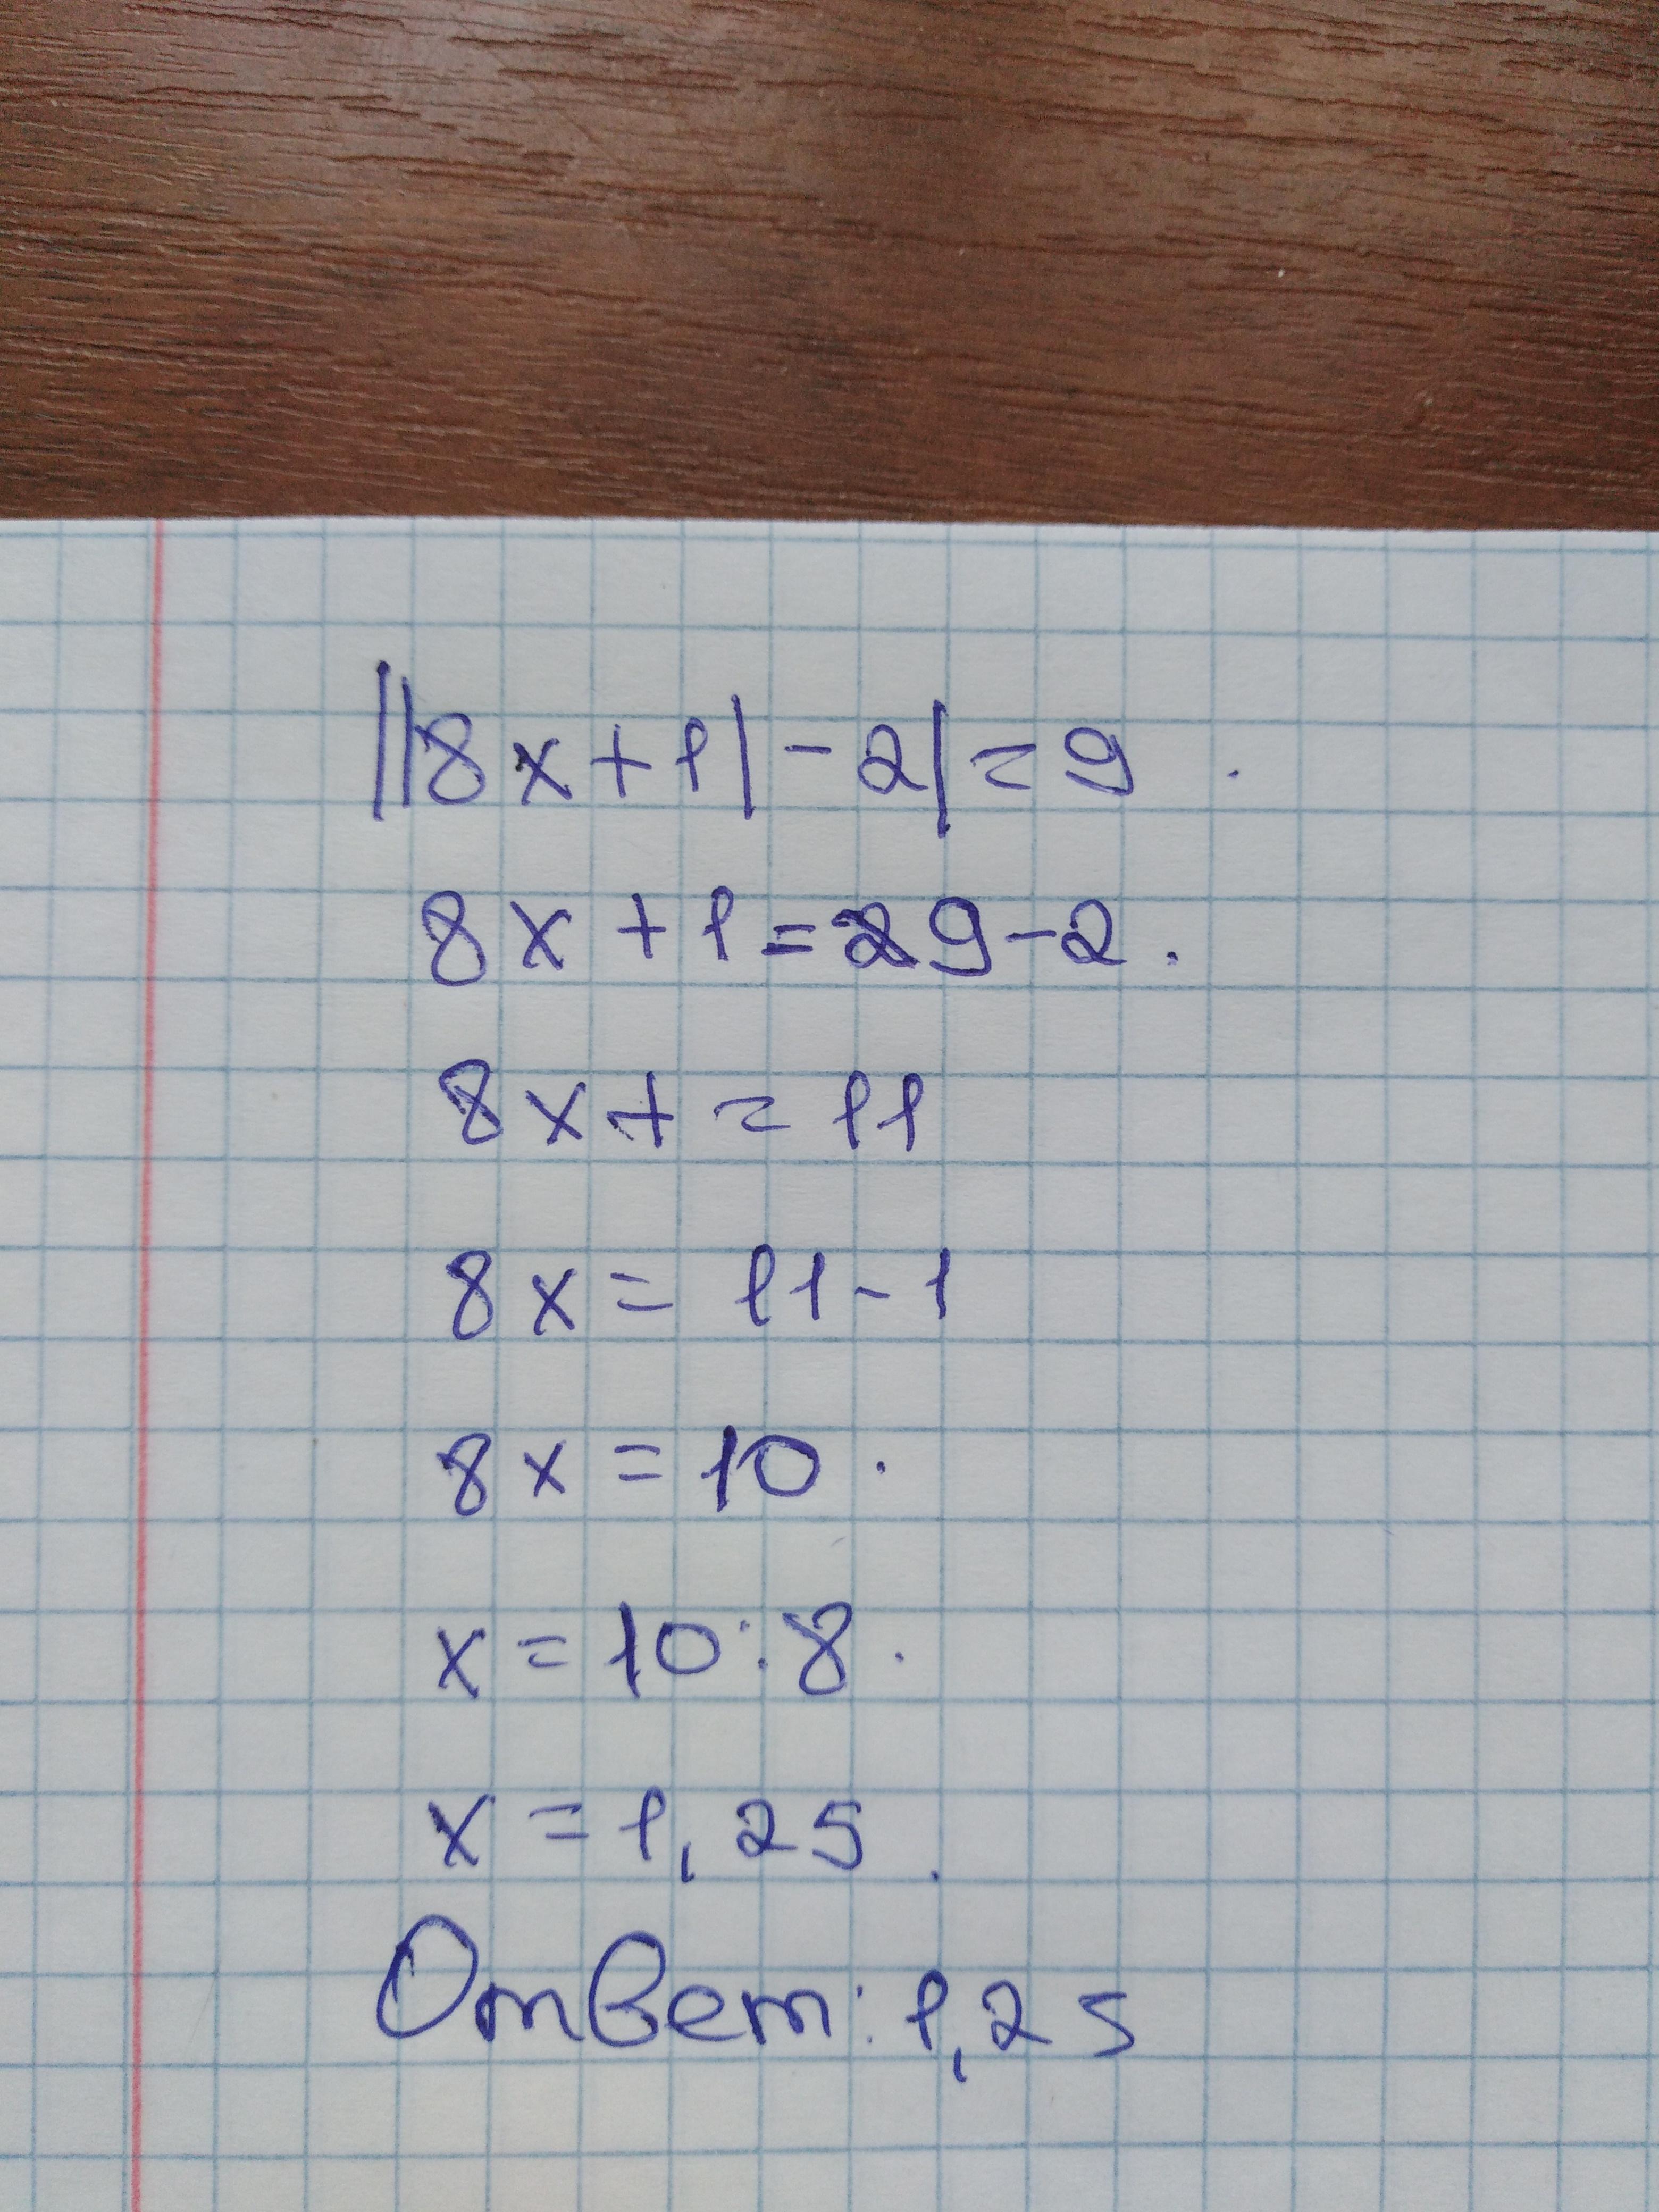 ||8x+1|-2|=9.
8x+1=29-2.
8x+=11
8x=11-1
8x=10.
x=10:8.
x=1,25.
Ответ: 1,25